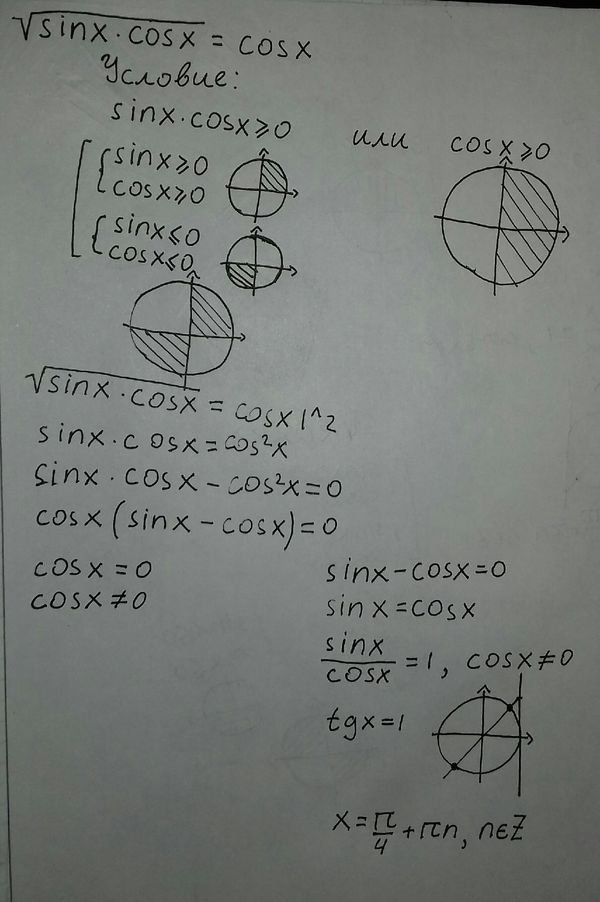 √sinx·cosx = cosx
Условие:
sinx·cosx⩾0 или cosx⩾0
[ { sinx⩾0
cosx⩾0
{ sinx⩽0
cosx⩽0
√sinx·cosx = cosx |^2
sinx·cosx=cos²x
sinx·cosx-cos²x=0
cosx(sinx-cosx)=0
cosx=0
cosx≠0
sinx-cosx=0
sinx=cosx
sinx/cosx=1, cosx≠0
tgx=1
x=π/4+πn, n∈Z